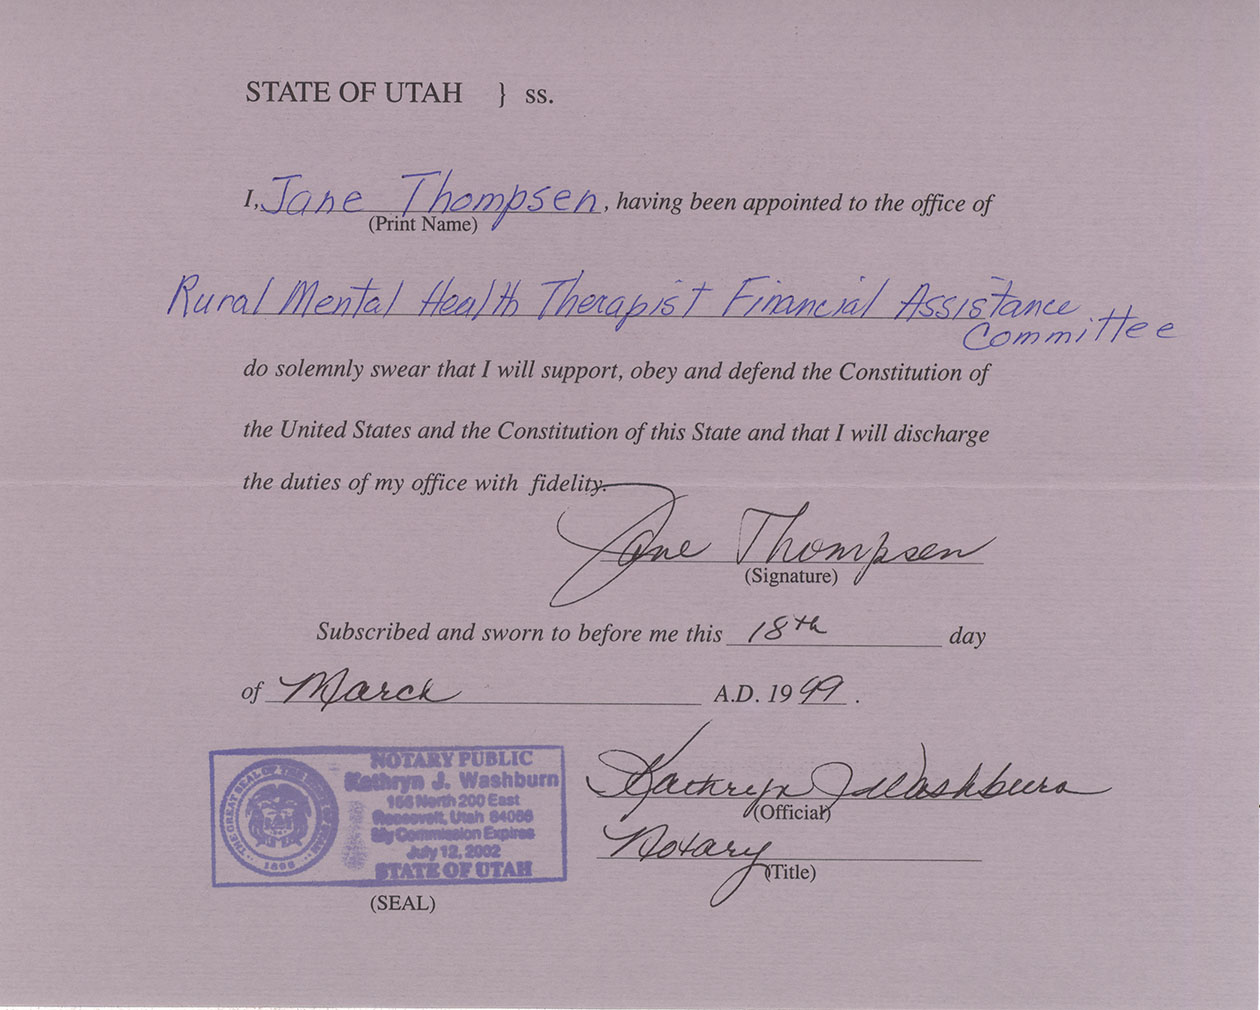 STATE OF UTAH } ss.
I, Jane Thompsen, having been appointed to the office of
(Print Name)
Rural Mental Health Therapist Financial Assistance
Committee
do solemnly swear that I will support, obey and defend the Constitution of
the United States and the Constitution of this State and that I will discharge
the duties of my office with fidelity.
Jane Thompsen
(Signature)
Subscribed and sworn to before me this 18th day
of March A.D. 1999.
NOTARY PUBLIC
Kathryn J. Washburn
North 200 East
Roosevelt, Utah 84066
My Commission Expires
July 12, 2002
STATE OF UTAH
THE GREAT SEAL OF THE STATE OF UTAH
1896
(SEAL)
Kathryn J Washburn
(Official)
Notary
(Title)